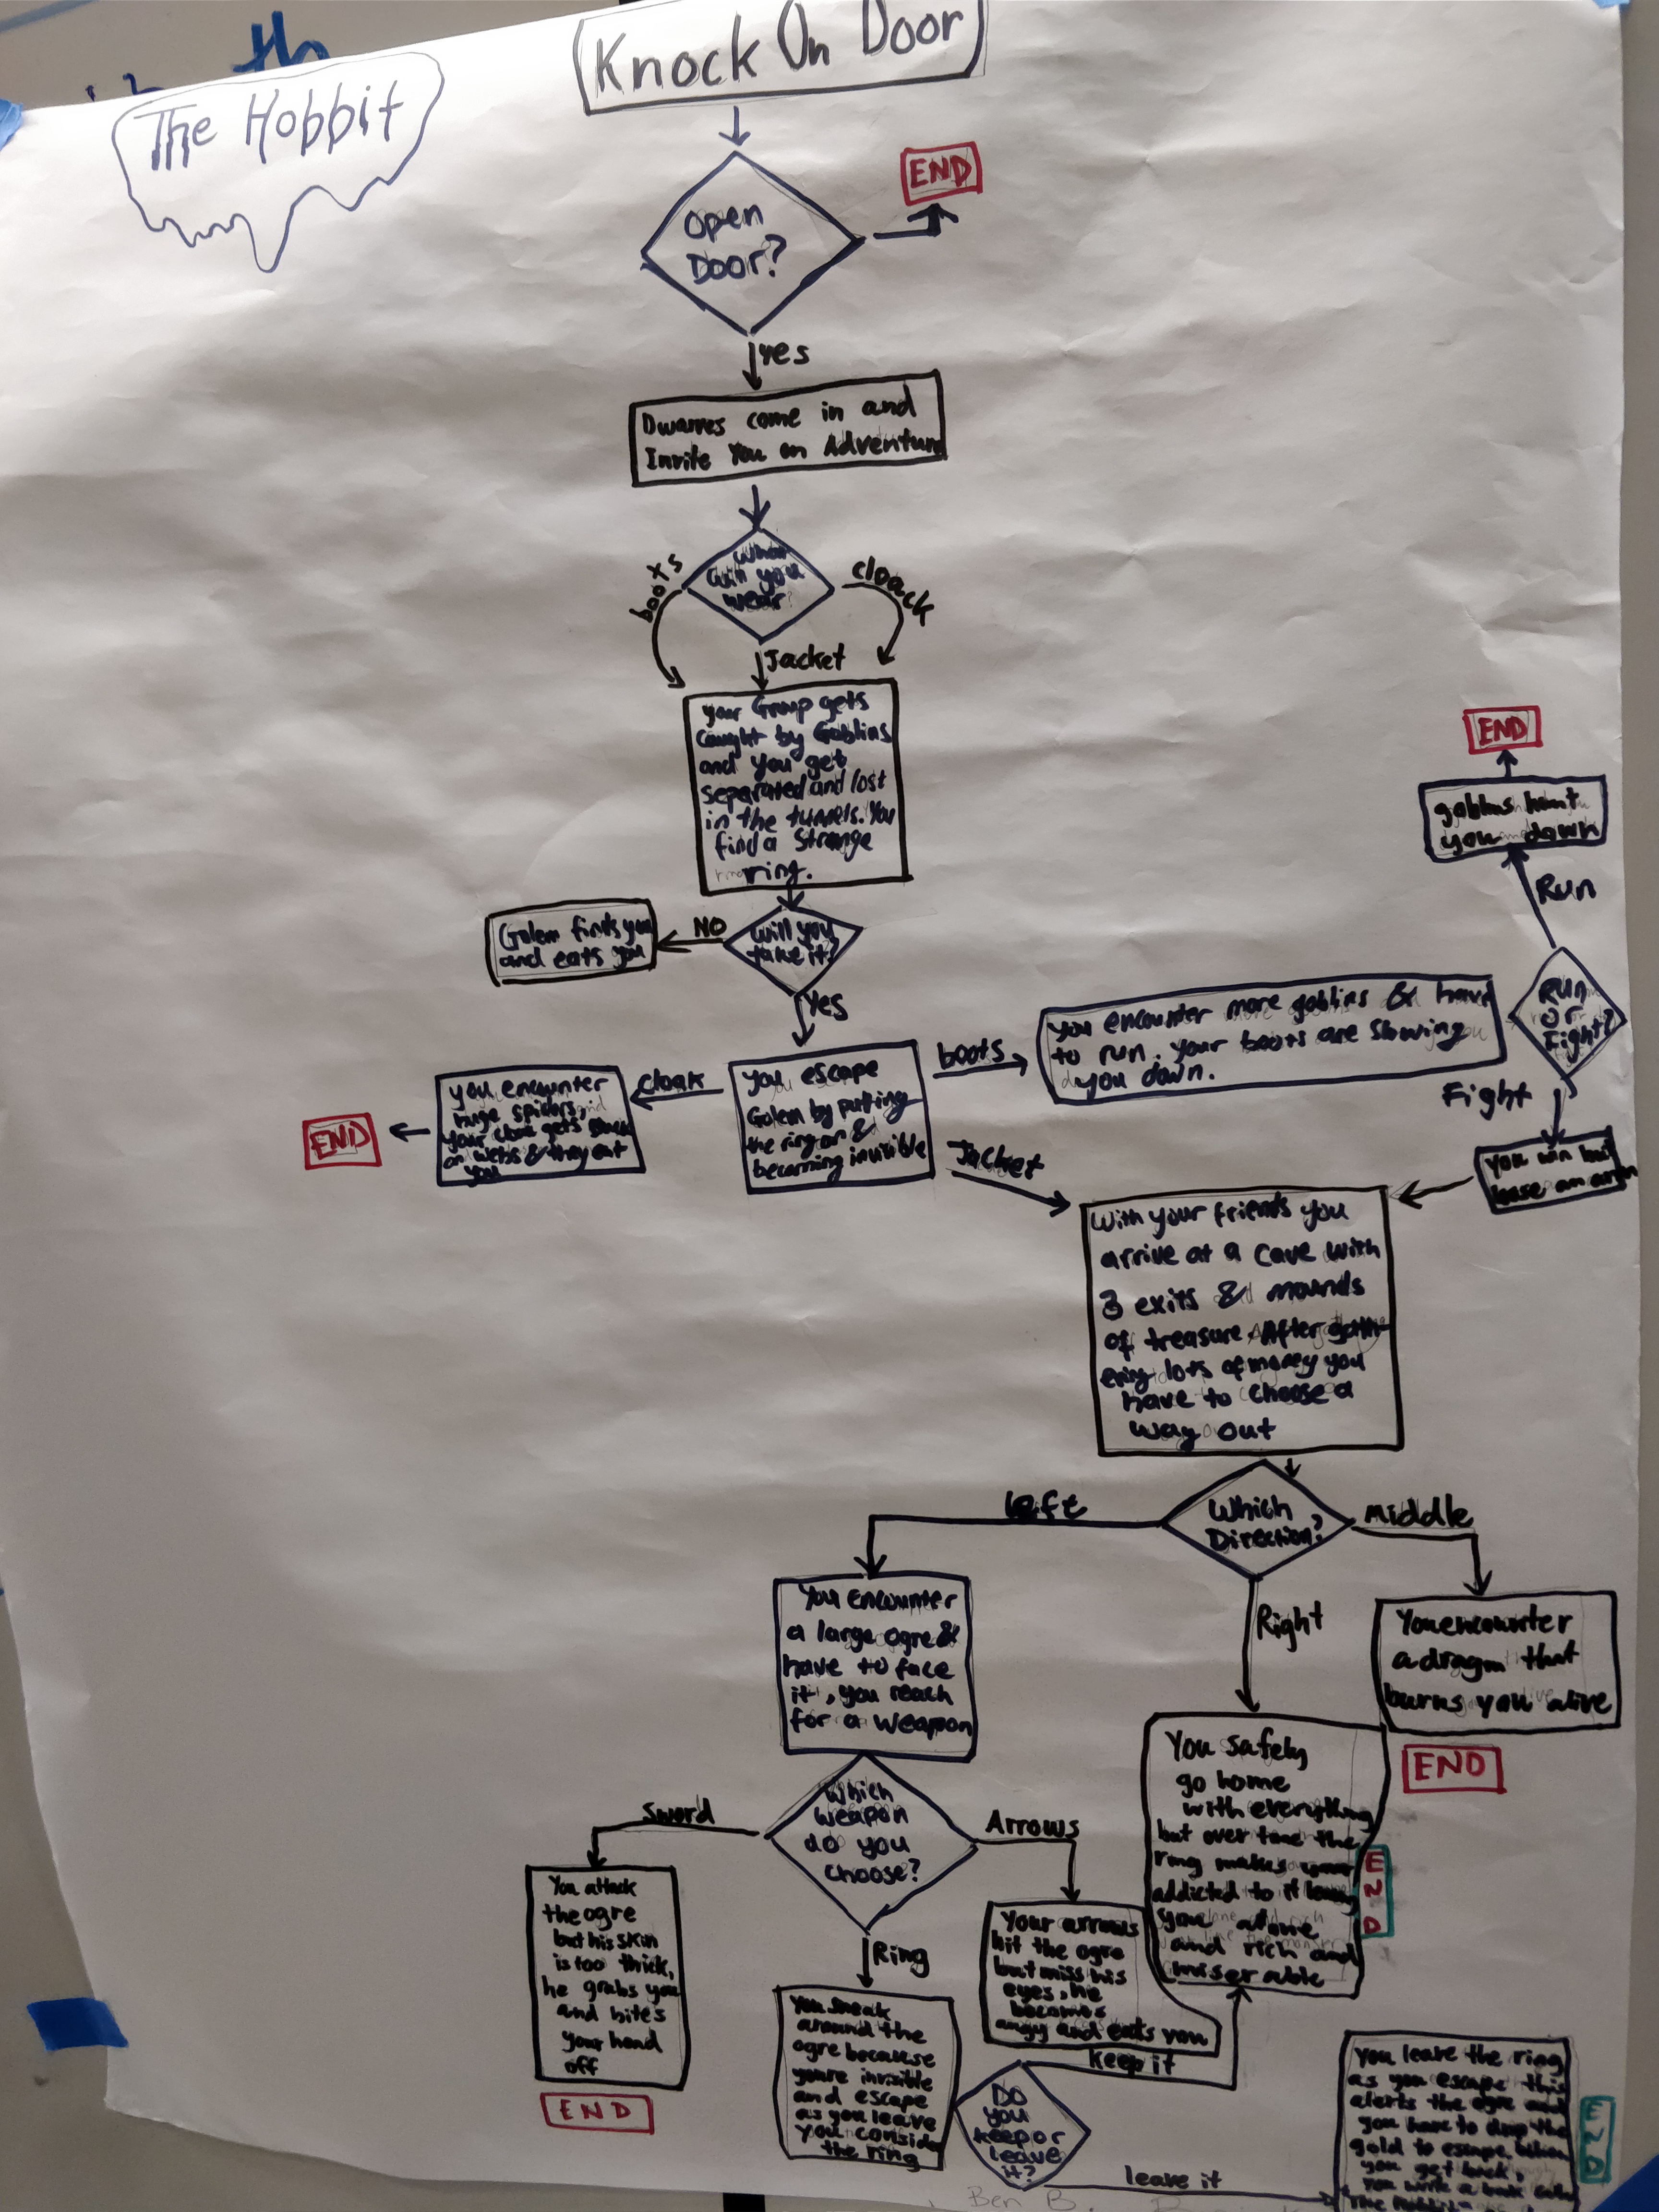 The Hobbit
Knock On Door
Open
Door?
END
Yes
Dwarves come in and
Invite You on Adventure
What
will you
wear?
boots
cloack
Jacket
your Group gets
caught by Goblins
and you get
separated and lost
in the tunnels. You
find a strange
ring.
Will you
take it?
NO
Golem finds you
and eats you
Yes
you escape
Golem by putting
the ring on &
becoming invisible
cloak
you encounter
huge spiders,
your cloak gets stuck
on webs & they eat
you
END
boots
you encounter more goblins & have
to run. your boots are slowing
you down.
Run
or
Fight?
Run
goblins hunt
you down
END
Fight
you win but
lose an arm
Jacket
With your friends you
arrive at a cave with
3 exits & mounds
of treasure. After gath-
ering lots of money you
have to choose a
way out
Which
Direction?
left
Middle
Right
You encounter
a dragon that
burns you alive
END
You safely
go home
with everything
but over time the
ring makes
addicted to it
you alone
and rich and
miserable
END
You encounter
a large ogre &
have to face
it, you reach
for a weapon
Which
weapon
do you
choose?
Sword
Arrows
Ring
You attack
the ogre
but his skin
is too thick,
he grabs you
and bites
your head
off
END
Your arrows
hit the ogre
but miss his
eyes, he
becomes
angry and eats you
You sneak
around the
ogre because
youre invisible
and escape
as you leave
you consider
the ring
Do
you
keep or
leave
it?
keep it
leave it
You leave the ring
as you escape this
alerts the ogre and
you have to drop the
gold to escape. When
you get back,
you write a book
The
END
Ben B.